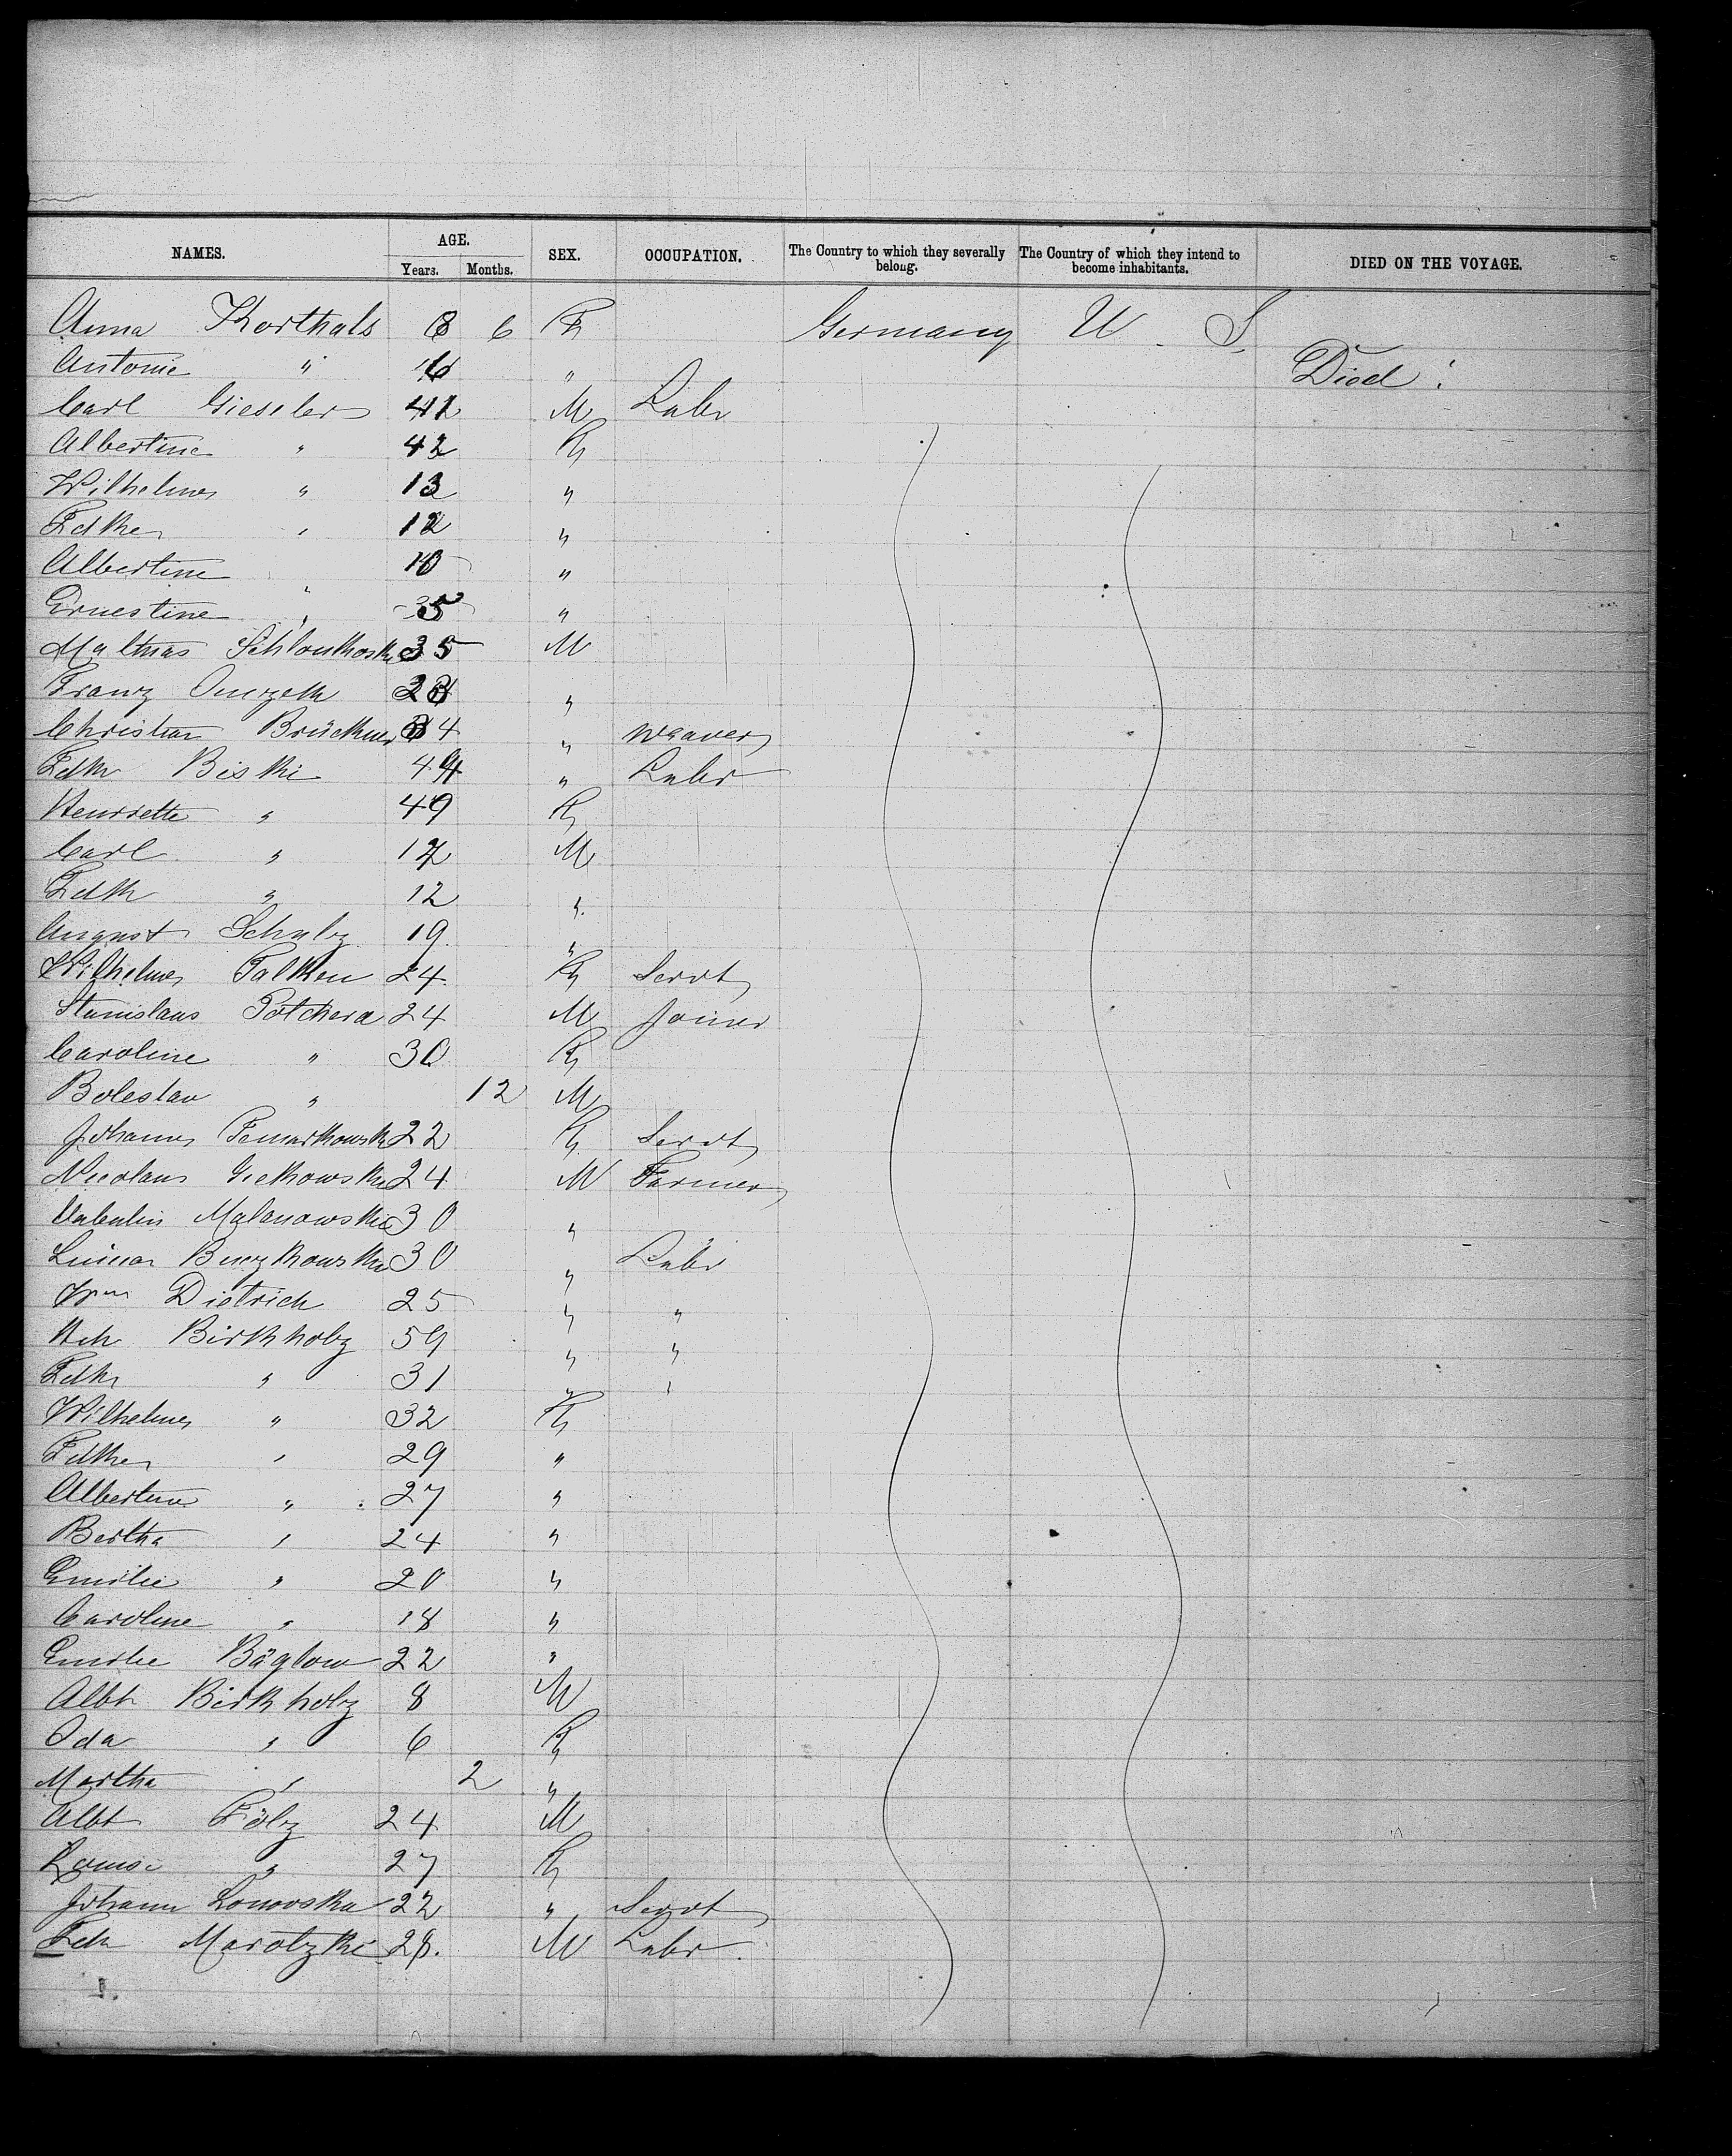 NAMES. AGE. Years. Months. SEX. OCCUPATION. The Country to which they severally belong. The Country of which they intend to become inhabitants. DIED ON THE VOYAGE.
Anna Korthals 6 F Germany U. S.
Antonie " " Died :
Carl Gieseler 41 M Labr
Albertine " 42 F
Wilhelmn " 13 "
Fdke " 12 "
Albertine " 10 "
Ernestine " 5 "
Mathias 35 M
Franz "
Christian Brückner 34 " weaver
Fdk Biski 44 " Labr
Henriette " 49 F
Carl " 17 M
Fdk " 12 "
August Schulz 19 "
Wilhelmn Falken 24 F Servt
Stanislaus Potchera 24 M Joiner
Caroline " 30 F
Boleslav " 12 M
Johanna 22 F Servt
Nicolaus 24 M Farmer
Malanowski 30 "
30 " Labr
Wm Dietrich 25 " "
Hch Birkholz 59 " "
Fdk " 31 " "
Wilhelmn " 32 F
Fdke " 29 "
Albertine " 27 "
Bertha " 24 "
Emilie " 20 "
Caroline " 18 "
Emilie Bäglow 22 "
Albt Birkholz 8 M
Ida " 6 F
Martha " 2 "
Albt Fölz 24 M
Louise " 27 F
Johann Lonovska 22 " Servt
Fdk Marotzki 28. M Labr